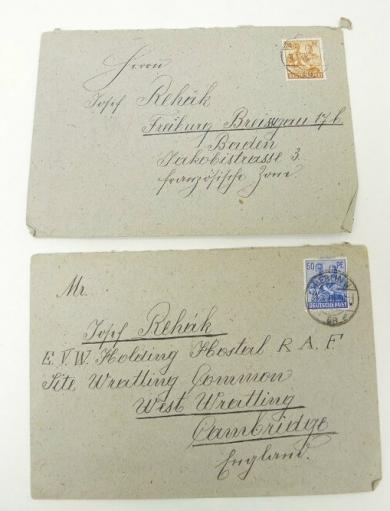 Herrn
Josef Rehák
Freiburg Breisgau 17b.
Baden
Jakobistrasse 3.
französische Zone
60 PF
DEUTSCHE POST
Mr.
Josef Rehák
E.V.W. Holding Hostal R.A.F
Site Wratting Common
West Wratting
Cambridge
England.